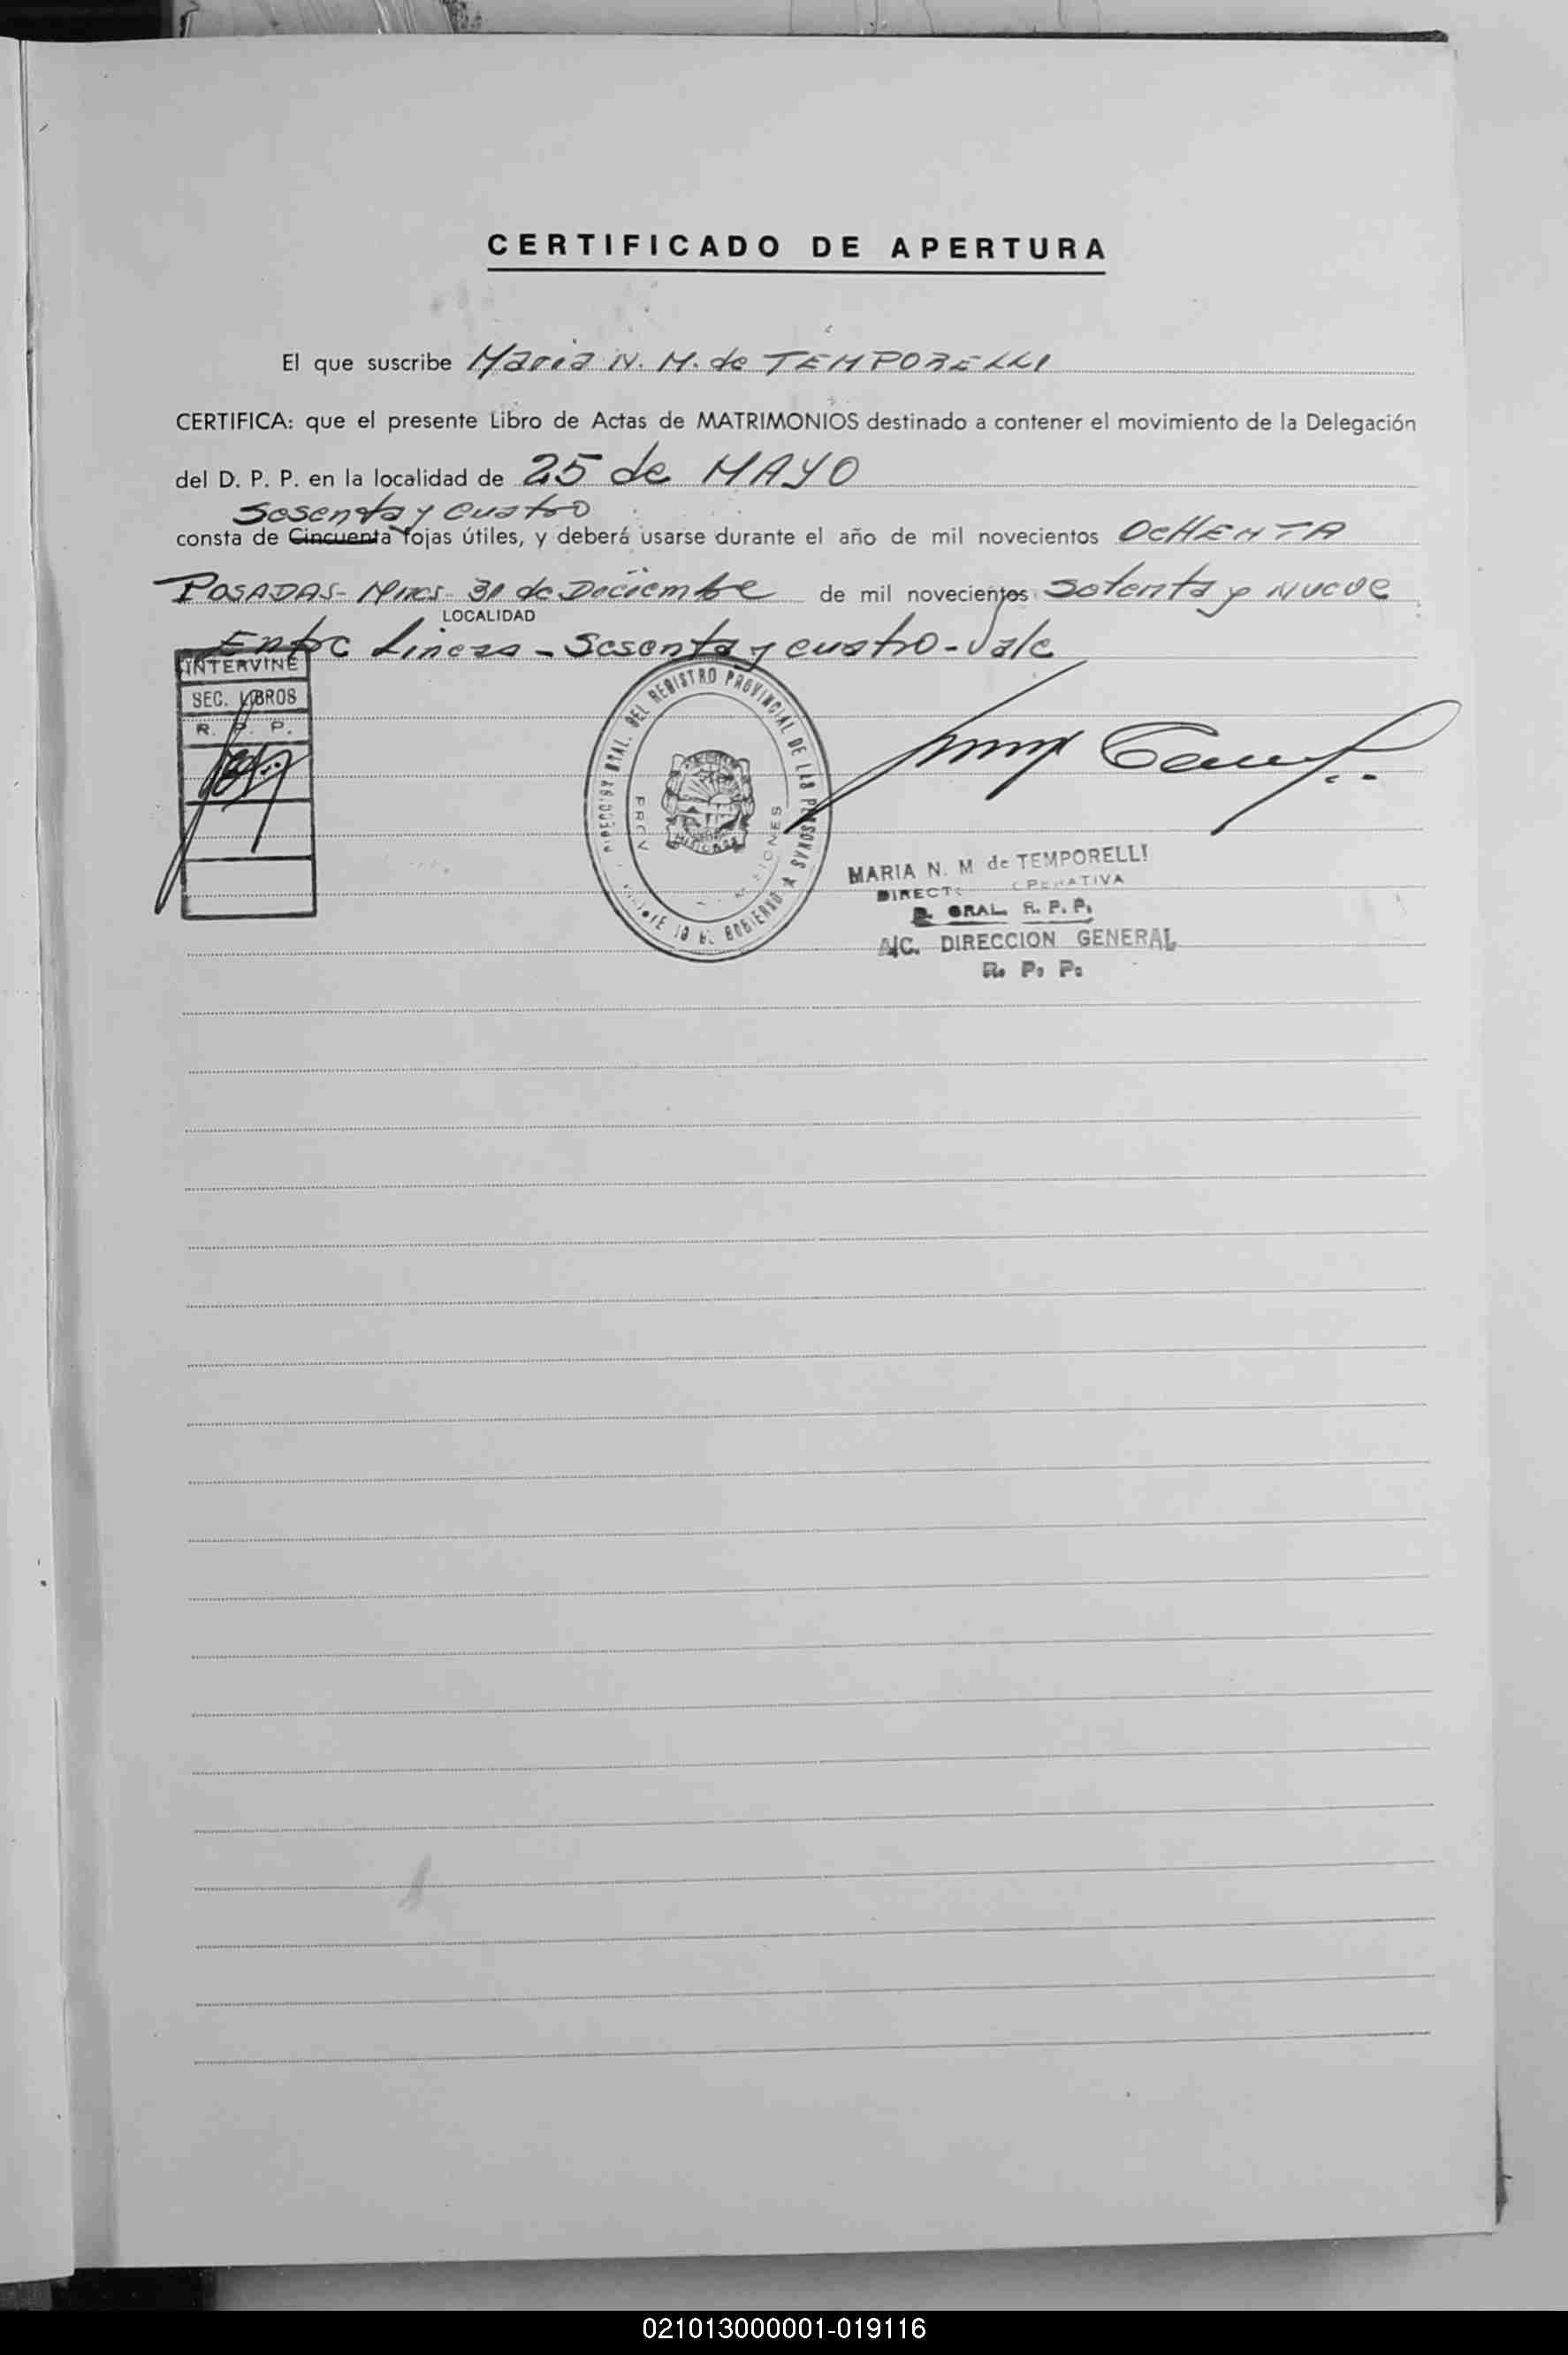 CERTIFICADO DE APERTURA
El que suscribe Maria N. M. de TEMPORELLI
CERTIFICA: que el presente Libro de Actas de MATRIMONIOS destinado a contener el movimiento de la Delegación
del D. P. P. en la localidad de 25 de MAYO
Sesenta y cuatro
consta de Cincuenta fojas útiles, y deberá usarse durante el año de mil novecientos OCHENTA
POSADAS- Mnes- 31 de Deciembre de mil novecientos Setenta y Nueve
LOCALIDAD
Entre Lineas - Sesenta y cuatro - Vale
INTERVINE
SEC. LIBROS
R. P. P.
DIRECCION GRAL. DEL REGISTRO PROVINCIAL DE LAS PERSONAS
GOBIERNO
PROV. MISIONES
MARIA N. M de TEMPORELLI
DIRECT OPERATIVA
D. GRAL. R. P. P.
A/C. DIRECCION GENERAL
R. P. P.
021013000001-019116